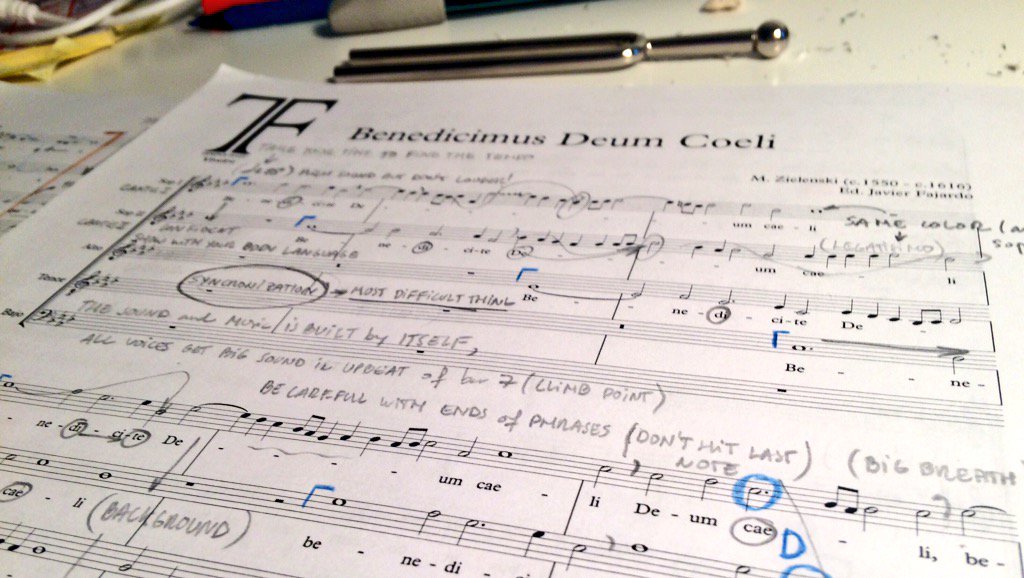 TF
Benedicimus Deum Coeli
TAKE YOUR TIME TO FIND THE TEMPO
M. Zielenski (c.1550 - c.1616)
Ed. Javier Fajardo
BUT DON'T LOUDER!
um cae - li
SAME COLOR
CONFIDENT
SHOW WITH YOUR BODY LANGUAGE
Be - ne - di - ci-te De
um cae
(LEGATISSIMO)
li
SYNCRONIZATION → MOST DIFFICULT THING
Tenor
Be - ne - di - ci-te De
THE SOUND and MUSIC IS BUILT by ITSELF,
Bajo
Be - ne-
ALL VOICES GET BIG SOUND IN UPBEAT of bar 7 (CLIMB POINT)
BE CAREFUL WITH ENDS of PHRASES (DON'T HIT LAST NOTE)
(BIG BREATH
- ne- di - ci-te De - - - um cae - li De - um cae - li, be-
D
cae - li
(BACKGROUND)
be - ne - di -